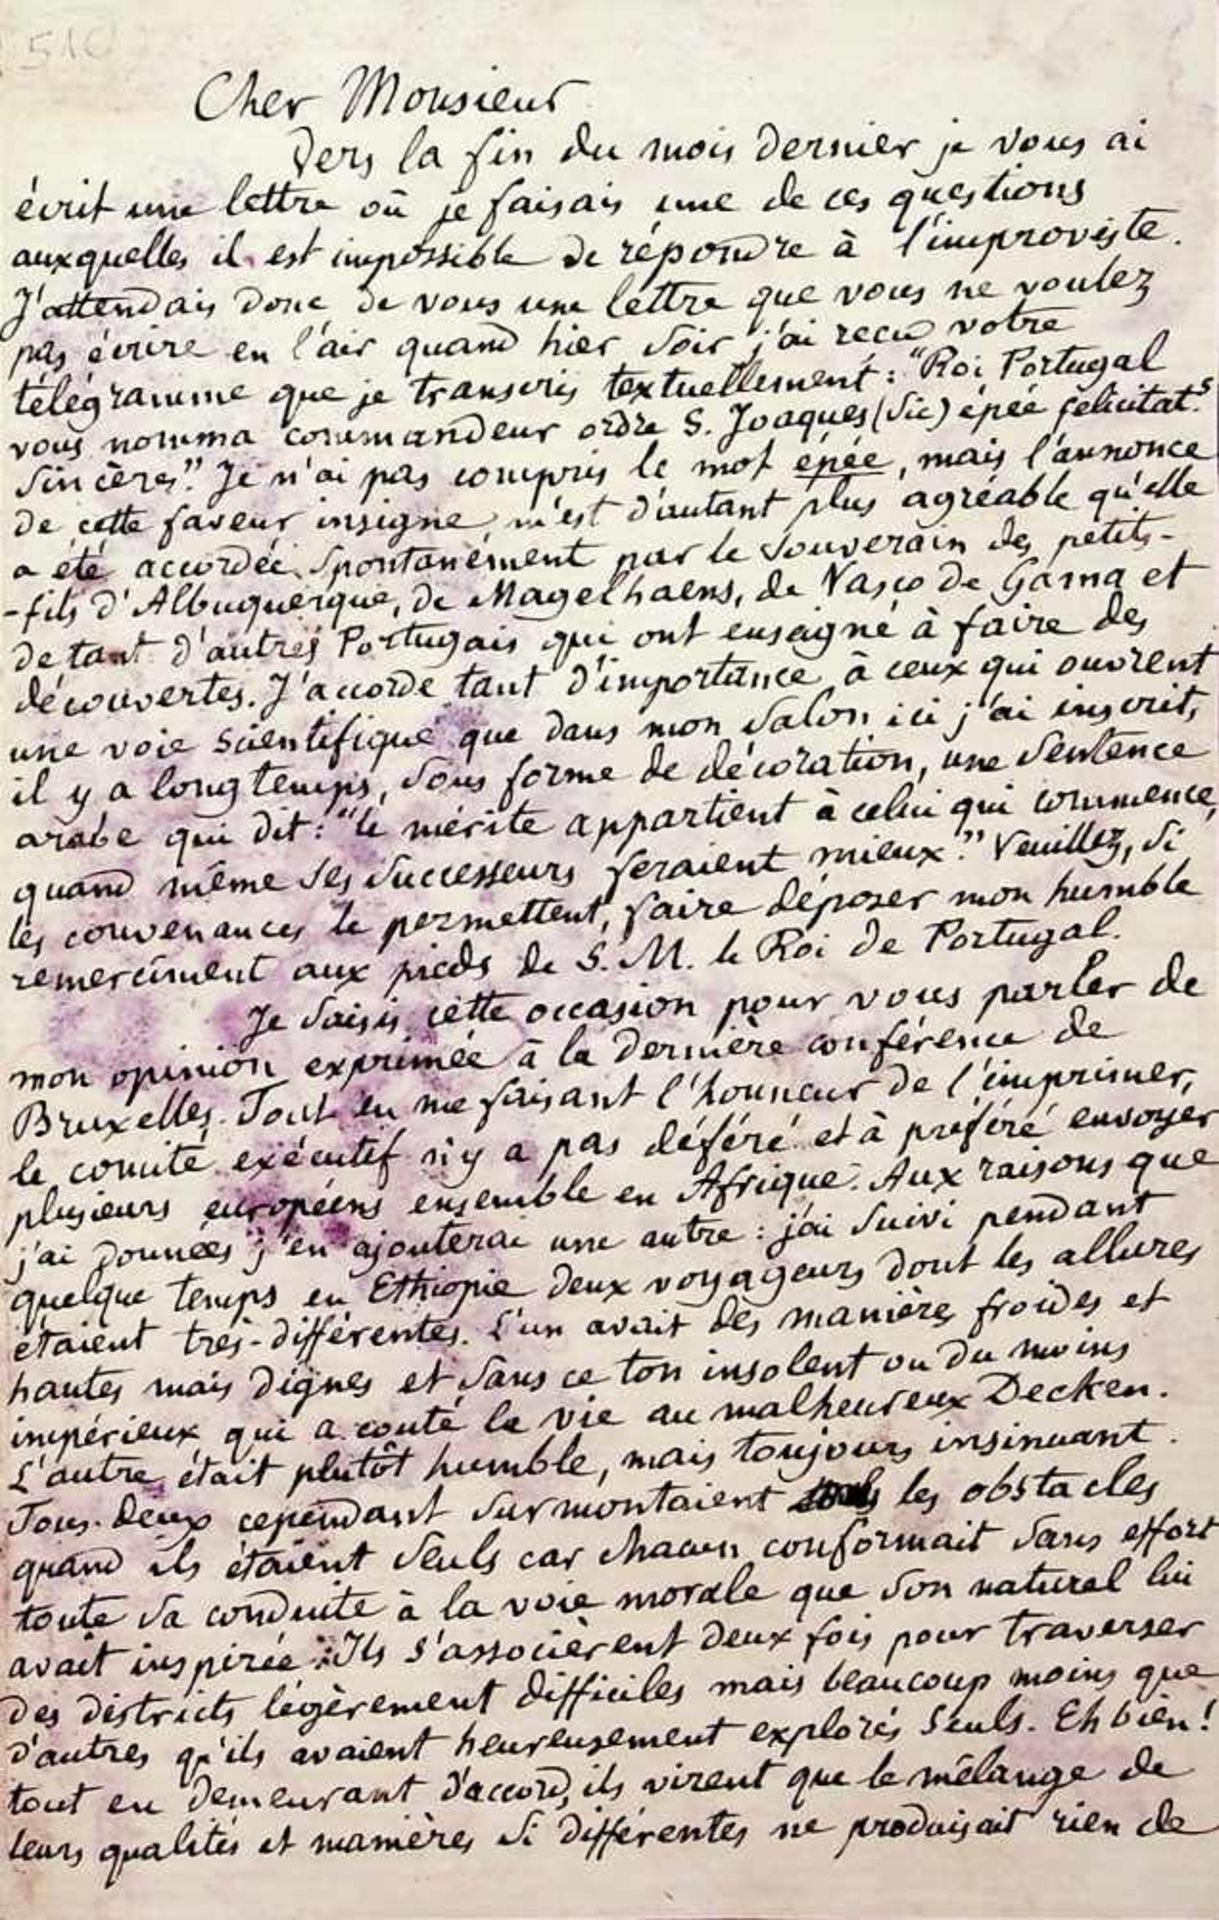 510
Cher Monsieur
Vers la fin du mois dernier je vous ai
écrit une lettre où je faisais une de ces questions
auxquelles il est impossible de répondre à l'improviste.
J'attendais donc de vous une lettre que vous ne voulez
pas écrire en l'air quand hier soir j'ai recu votre
télégramme que je transcris textuellement : "Roi Portugal
vous nomma commandeur ordre S. Joaques (sic) épée felicitat.s
sincères." Je n'ai pas compris le mot épée, mais l'annonce
de cette faveur insigne m'est d'autant plus agréable qu'elle
a été accordée spontanément par le souverain des petits-
-fils d'Albuquerque, de Magelhaens, de Vasco de Gama et
de tant d'autres Portugais qui ont enseigné à faire des
découvertes. J'accorde tant d'importance à ceux qui ouvrent
une voie scientifique que dans mon salon ici j'ai inscrit,
il y a longtemps, sous forme de décoration, une sentence
arabe qui dit : "le mérite appartient à celui qui commence,
quand même ses successeurs feraient mieux." Veuillez, si
les convenances le permettent, faire déposer mon humble
remercîment aux pieds de S. M. le Roi de Portugal.
Je saisis cette occasion pour vous parler de
mon opinion exprimée à la dernière conférence de
Bruxelles. Tout en me faisant l'honneur de l'imprimer,
le comité exécutif n'y a pas déféré et à préféré envoyer
plusieurs européens ensemble en Afrique. Aux raisons que
j'ai données j'en ajouterai une autre : j'ai suivi pendant
quelque temps en Ethiopie deux voyageurs dont les allures
étaient très-différentes. L'un avait des manières froides et
hautes mais dignes et sans ce ton insolent ou du moins
impérieux qui a couté la vie au malheureux Decken.
L'autre était plutôt humble, mais toujours insinuant.
Tous deux cependant surmontaient les obstacles
quand ils étaient seuls car chacun conformait sans effort
toute sa conduite à la voie morale que son naturel lui
avait inspirée. Ils s'associèrent deux fois pour traverser
des districts légèrement difficiles mais beaucoup moins que
d'autres qu'ils avaient heureusement explorés seuls. Eh bien !
tout en demeurant d'accord, ils virent que le mélange de
leurs qualités et manières si différentes ne produisait rien de